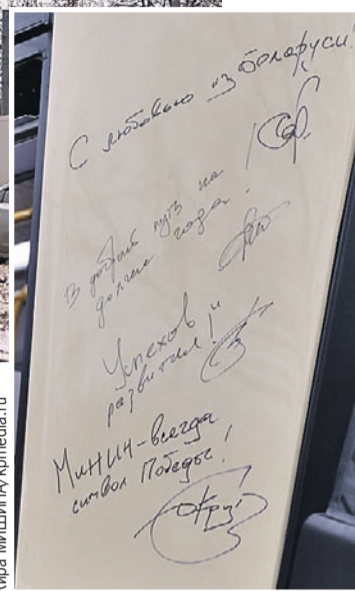 С любовью из Беларуси!
В добрый путь на
долгие года!
Успехов и
развития!
МИНИН - всегда
символ Победы!
ира МИШИНА/kpmedia.ru